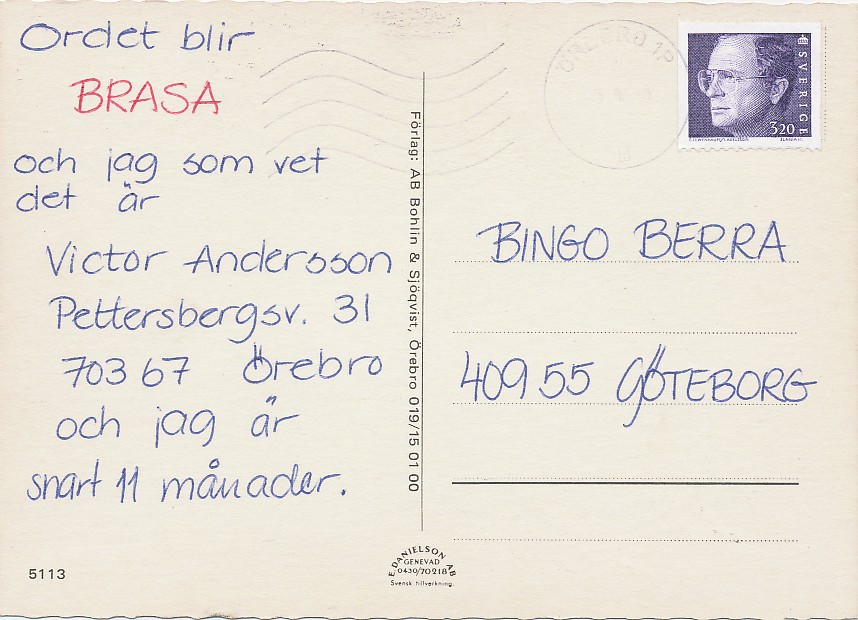 Ordet blir
BRASA
och jag som vet
det är
Victor Andersson
Pettersbergsv. 31
703 67 Örebro
och jag är
snart 11 månader.
5113
Förlag: AB Bohlin & Sjöqvist, Örebro 019/15 01 00
E. DANIELSON AB
GENEVAD
0430/70218
Svensk tillverkning.
ÖREBRO 1P
SVERIGE
320
BINGO BERRA
409 55 GÖTEBORG